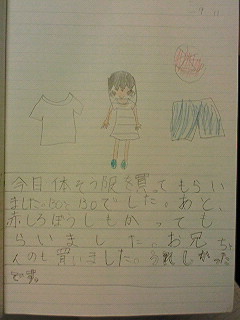 今日体そう服を買てもらい
ました。130と130でした。あと、
赤しろぼうしもかっても
らいました。お兄ちゃ
んのも買いました。うれしかった
です。